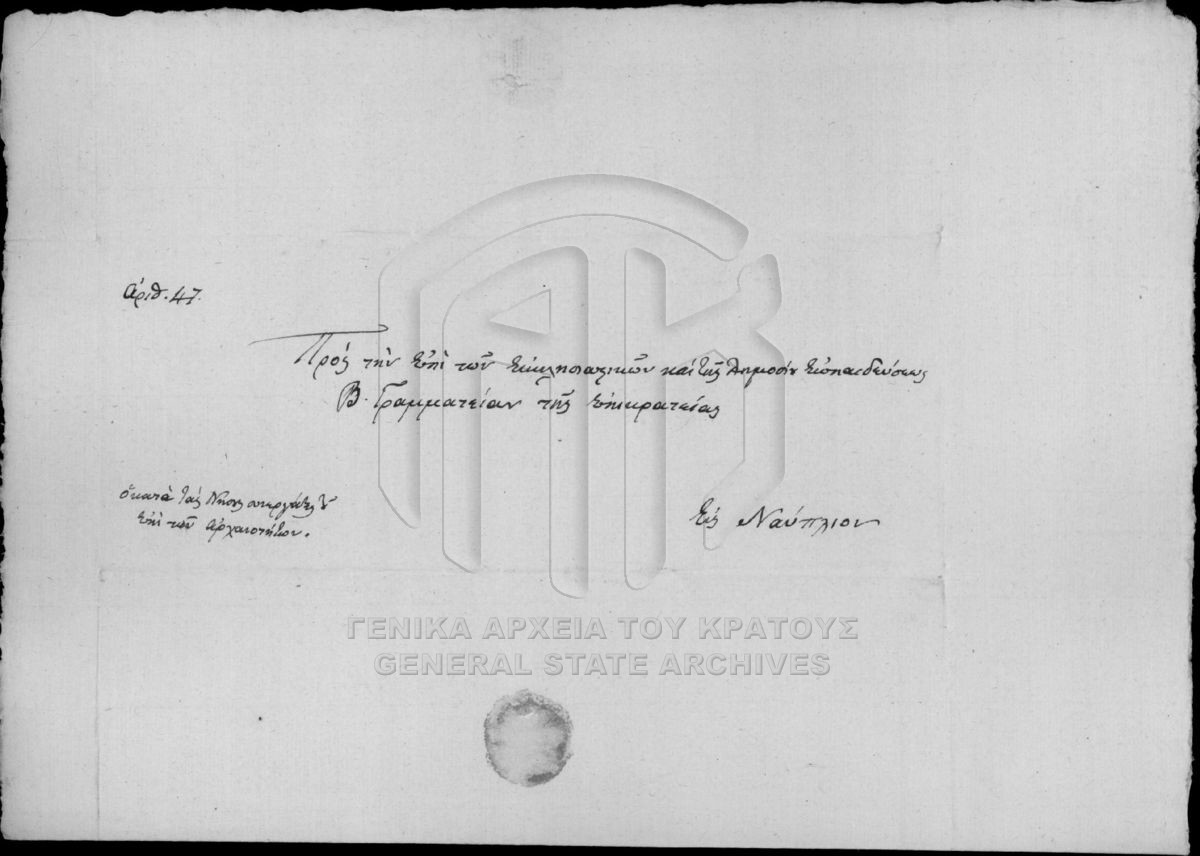 Αριθ. 47.
Πρὸς τὴν ἐπὶ τῶν Ἐκκλησιαστικῶν καὶ τῆς Δημοσίου Ἐκπαιδεύσεως
Β. Γραμματείαν τῆς Ἐπικρατείας
ὁ κατὰ τὰς Νήσους
ἐπὶ τῶν ἀρχαιοτήτων.
Εἰς Ναύπλιον
ΓΕΝΙΚΑ ΑΡΧΕΙΑ ΤΟΥ ΚΡΑΤΟΥΣ
GENERAL STATE ARCHIVES